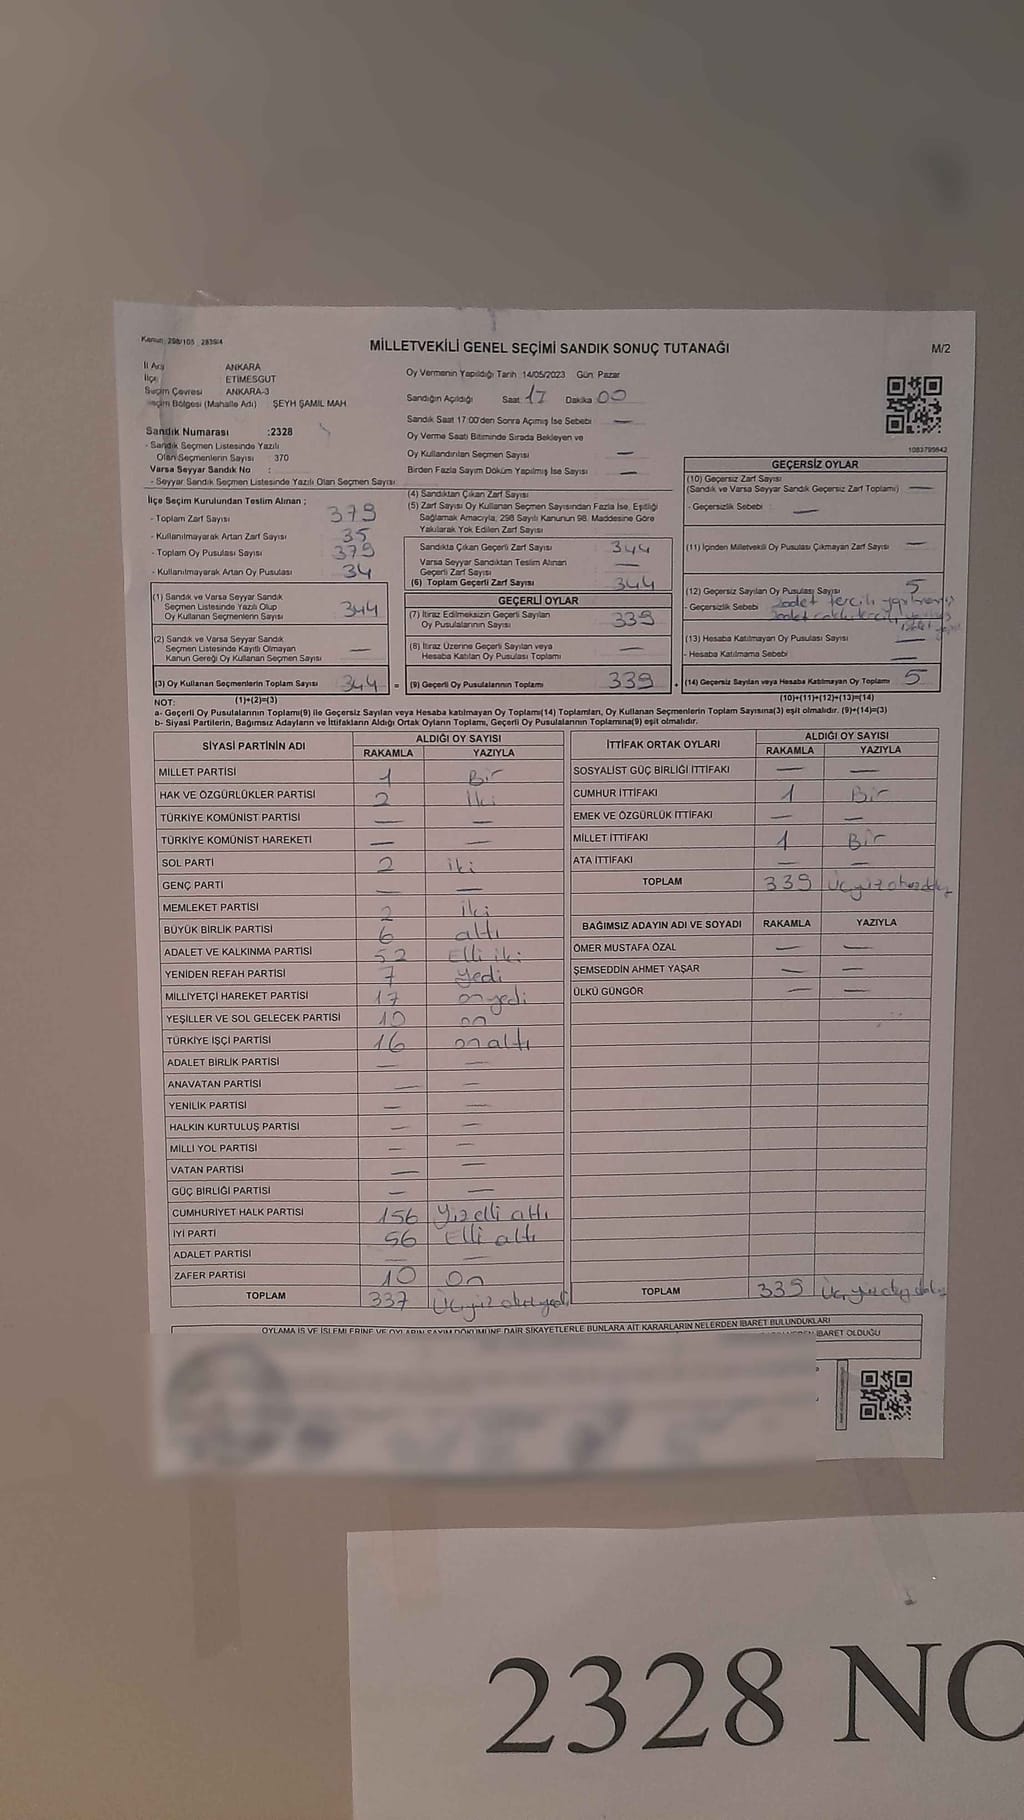 Kanun: 298/105 , 2839/4
MİLLETVEKİLİ GENEL SEÇİMİ SANDIK SONUÇ TUTANAĞI
M/2
İl Adı ANKARA
İlçe ETİMESGUT
Seçim Çevresi ANKARA-3
Seçim Bölgesi (Mahalle Adı) ŞEYH ŞAMİL MAH.
Sandık Numarası :2328
- Sandık Seçmen Listesinde Yazılı
Olan Seçmenlerin Sayısı : 370
Varsa Seyyar Sandık No :
- Seyyar Sandık Seçmen Listesinde Yazılı Olan Seçmen Sayısı
Oy Vermenin Yapıldığı Tarih 14/05/2023 Gün: Pazar
Sandığın Açıldığı Saat 17 Dakika 00
Sandık Saat 17:00'den Sonra Açımış İse Sebebi —
Oy Verme Saati Bitiminde Sırada Bekleyen ve
Oy Kullandırılan Seçmen Sayısı —
Birden Fazla Sayım Döküm Yapılmış İse Sayısı —
1083799842
İlçe Seçim Kurulundan Teslim Alınan ;
- Toplam Zarf Sayısı 379
- Kullanılmayarak Artan Zarf Sayısı 35
- Toplam Oy Pusulası Sayısı 379
- Kullanılmayarak Artan Oy Pusulası 34
(1) Sandık ve Varsa Seyyar Sandık
Seçmen Listesinde Yazılı Olup
Oy Kullanan Seçmenlerin Sayısı 344
(2) Sandık ve Varsa Seyyar Sandık
Seçmen Listesinde Kayıtlı Olmayan
Kanun Gereği Oy Kullanan Seçmen Sayısı —
(3) Oy Kullanan Seçmenlerin Toplam Sayısı 344
(1)+(2)=(3)
(4) Sandıktan Çıkan Zarf Sayısı
(5) Zarf Sayısı Oy Kullanan Seçmen Sayısından Fazla İse, Eşitliği
Sağlamak Amacıyla, 298 Sayılı Kanunun 98. Maddesine Göre
Yakılarak Yok Edilen Zarf Sayısı
Sandıkta Çıkan Geçerli Zarf Sayısı 344
Varsa Seyyar Sandıktan Teslim Alınan
Geçerli Zarf Sayısı —
(6) Toplam Geçerli Zarf Sayısı 344
GEÇERLİ OYLAR
(7) İtiraz Edilmeksizin Geçerli Sayılan
Oy Pusulalarının Sayısı 339
(8) İtiraz Üzerine Geçerli Sayılan veya
Hesaba Katılan Oy Pusulası Toplamı —
= (9) Geçerli Oy Pusulalarının Toplamı 339
GEÇERSİZ OYLAR
(10) Geçersiz Zarf Sayısı
(Sandık ve Varsa Seyyar Sandık Geçersiz Zarf Toplamı) —
- Geçersizlik Sebebi : —
(11) İçinden Milletvekili Oy Pusulası Çıkmayan Zarf Sayısı —
(12) Geçersiz Sayılan Oy Pusulası Sayısı 5
- Geçersizlik Sebebi adet tercih yapılmamış
(13) Hesaba Katılmayan Oy Pusulası Sayısı —
- Hesaba Katılmama Sebebi : —
+ (14) Geçersiz Sayılan veya Hesaba Katılmayan Oy Toplamı 5
(10)+(11)+(12)+(13)=(14)
NOT:
a- Geçerli Oy Pusulalarının Toplamı(9) ile Geçersiz Sayılan veya Hesaba katılmayan Oy Toplamı(14) Toplamları, Oy Kullanan Seçmenlerin Toplam Sayısına(3) eşit olmalıdır. (9)+(14)=(3)
b- Siyasi Partilerin, Bağımsız Adayların ve İttifakların Aldığı Ortak Oyların Toplamı, Geçerli Oy Pusulalarının Toplamına(9) eşit olmalıdır.
SİYASİ PARTİNİN ADI
ALDIĞI OY SAYISI
RAKAMLA YAZIYLA
MİLLET PARTİSİ 1 Bir
HAK VE ÖZGÜRLÜKLER PARTİSİ 2 İki
TÜRKİYE KOMÜNİST PARTİSİ — —
TÜRKİYE KOMÜNİST HAREKETİ — —
SOL PARTİ 2 iki
GENÇ PARTİ — —
MEMLEKET PARTİSİ 2 iki
BÜYÜK BİRLİK PARTİSİ 6 altı
ADALET VE KALKINMA PARTİSİ 52 Elli iki
YENİDEN REFAH PARTİSİ 7 Yedi
MİLLİYETÇİ HAREKET PARTİSİ 17 on yedi
YEŞİLLER VE SOL GELECEK PARTİSİ 10 on
TÜRKİYE İŞÇİ PARTİSİ 16 on altı
ADALET BİRLİK PARTİSİ — —
ANAVATAN PARTİSİ — —
YENİLİK PARTİSİ — —
HALKIN KURTULUŞ PARTİSİ — —
MİLLİ YOL PARTİSİ — —
VATAN PARTİSİ — —
GÜÇ BİRLİĞİ PARTİSİ — —
CUMHURİYET HALK PARTİSİ 156 Yüzelli altı
İYİ PARTİ 56 Elli altı
ADALET PARTİSİ — —
ZAFER PARTİSİ 10 On
TOPLAM 337 Üçyüz otuzyedi
İTTİFAK ORTAK OYLARI
ALDIĞI OY SAYISI
RAKAMLA YAZIYLA
SOSYALİST GÜÇ BİRLİĞİ İTTİFAKI — —
CUMHUR İTTİFAKI 1 Bir
EMEK VE ÖZGÜRLÜK İTTİFAKI — —
MİLLET İTTİFAKI 1 Bir
ATA İTTİFAKI — —
TOPLAM 339 Üçyüz otuzdokuz
BAĞIMSIZ ADAYIN ADI VE SOYADI RAKAMLA YAZIYLA
ÖMER MUSTAFA ÖZAL — —
ŞEMSEDDİN AHMET YAŞAR — —
ÜLKÜ GÜNGÖR — —
TOPLAM 339 Üçyüz otuz dokuz
OYLAMA İŞ VE İŞLEMLERİNE VE OYLARIN SAYIM DÖKÜMÜNE DAİR ŞİKAYETLERLE BUNLARA AİT KARARLARIN NELERDEN İBARET BULUNDUKLARI
İBARET OLDUĞU
2328 NO